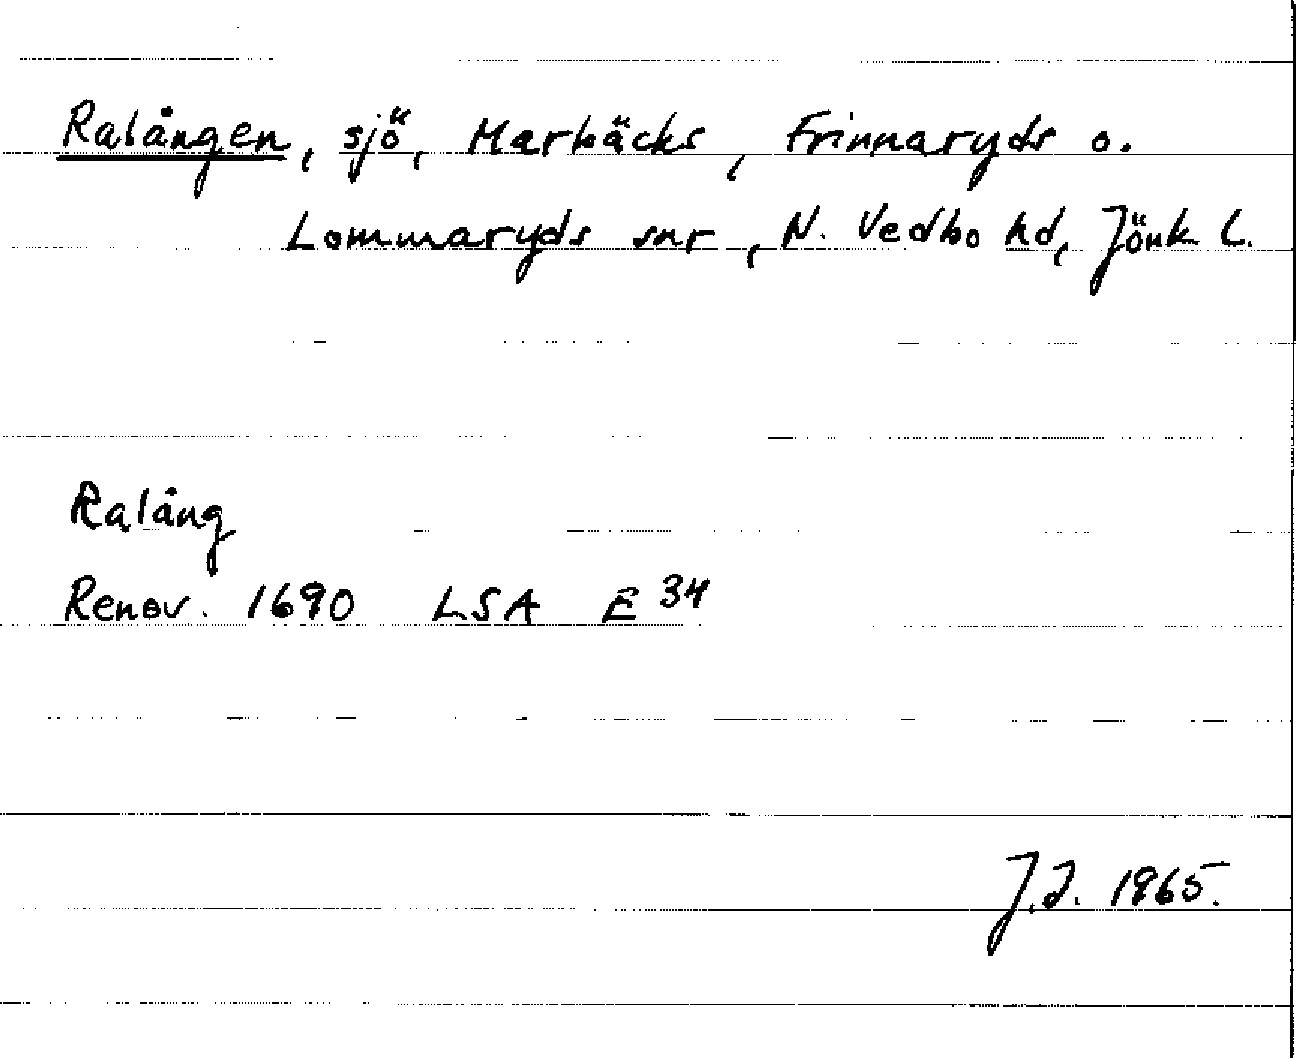 Ralången, sjö, Marbäcks, Frinnaryds o.
Lommaryds snr, N. Vedbo hd, Jönk l.
Ralång
Renov. 1690 LSA E 34
J.I. 1965.